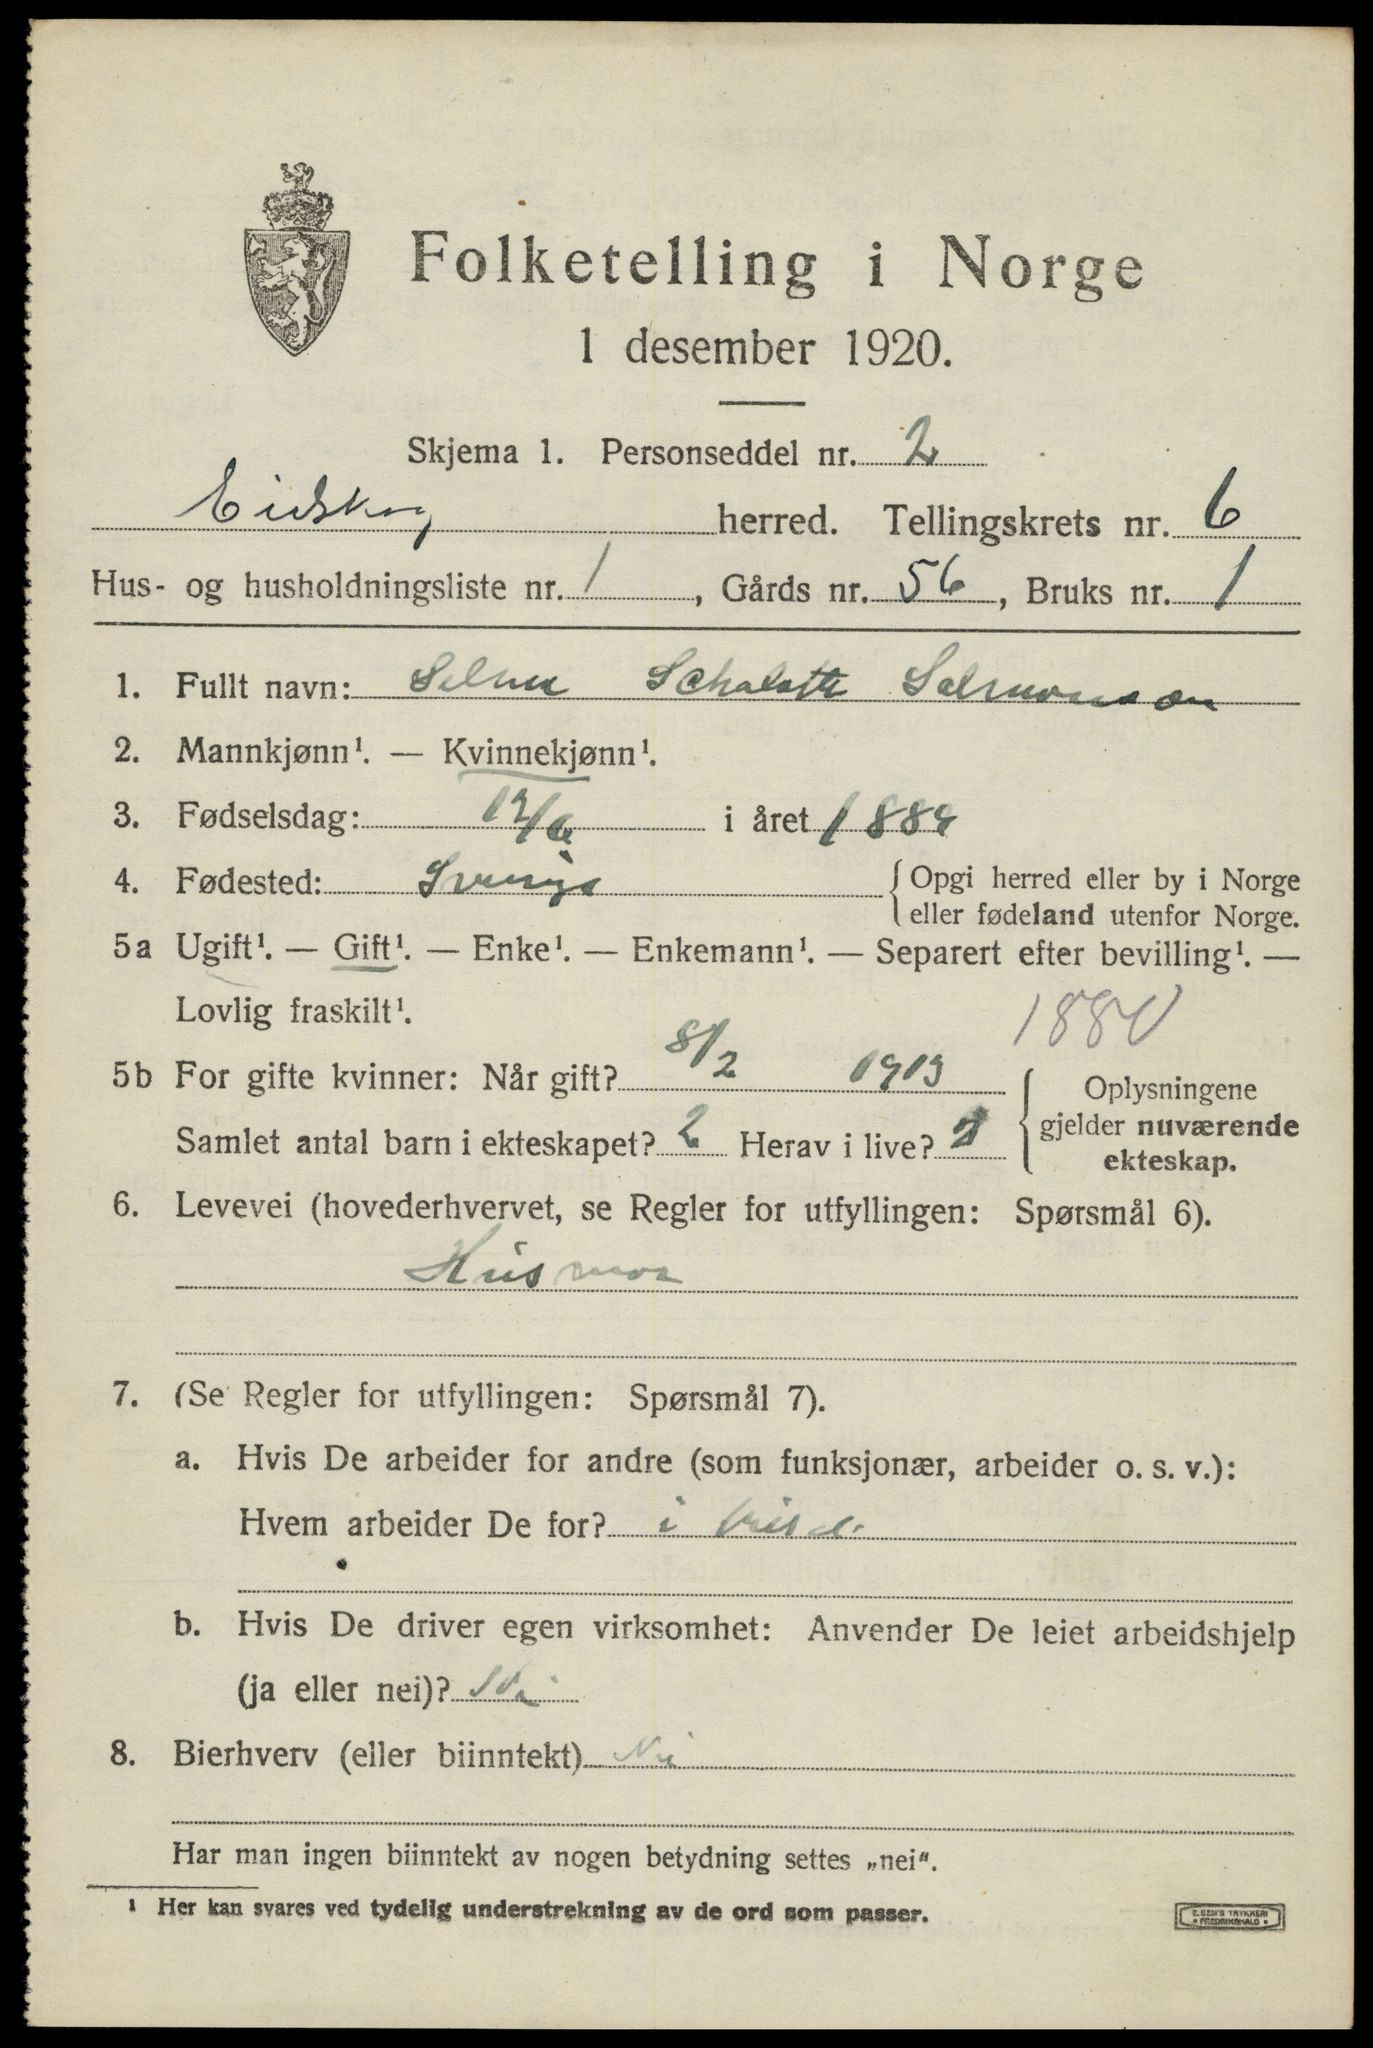 Folketelling i Norge
1 desember 1920.
Skjema 1. Personseddel nr. 2
Eidskog herred. Tellingskrets nr. 6
Hus- og husholdningsliste nr. 1, Gårds nr. 56, Bruks nr. 1
1. Fullt navn: Selma Schalotte
2. Mannkjønn¹. — Kvinnekjønn¹.
3. Fødselsdag: 12/6 i året
4. Fødested: Sverige
Opgi herred eller by i Norge
eller fødeland utenfor Norge.
5a Ugift¹. — Gift¹. — Enke¹. — Enkemann¹. — Separert efter bevilling¹. —
Lovlig fraskilt¹.
5b For gifte kvinner: Når gift? 8/2 1913
Samlet antal barn i ekteskapet? 2 Herav i live? 2
Oplysningene
gjelder nuværende
ekteskap.
6. Levevei (hovederhvervet, se Regler for utfyllingen: Spørsmål 6).
Husmor
7. (Se Regler for utfyllingen: Spørsmål 7).
a. Hvis De arbeider for andre (som funksjonær, arbeider o. s. v.):
Hvem arbeider De for? i
b. Hvis De driver egen virksomhet: Anvender De leiet arbeidshjelp
(ja eller nei)? Nei
8. Bierhverv (eller biinntekt) Nei
Har man ingen biinntekt av nogen betydning settes „nei".
¹ Her kan svares ved tydelig understrekning av de ord som passer.
E. SEM'S TRYKKERI
FREDRIKSHALD